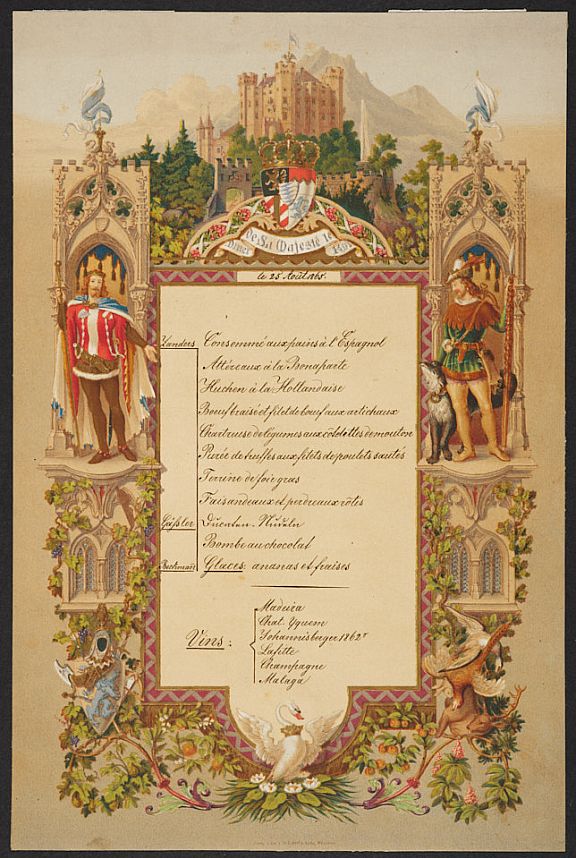 Diner de Sa Majesté le Roi
le 25 Août 1865.
Zanders Consommé aux pains à l'Espagnol
Attéreaux à la Bonaparte
Huchen à la Hollandaise
Boeuf braisé et filet de boeuf aux artichaux
Chartreuse de légumes aux côtelettes de mouton
Purée de truffes aux filets de poulets sautés
Terrine de foie gras
Faisandeaux et perdreaux rôtes
Gäßler Ducaten-Nudeln
Bombe au chocolat
Glaces: ananas et fraises
Vins:
Madeira
Chat. Yquem
Johannisberger 1862r
Lafitte
Champagne
Malaga